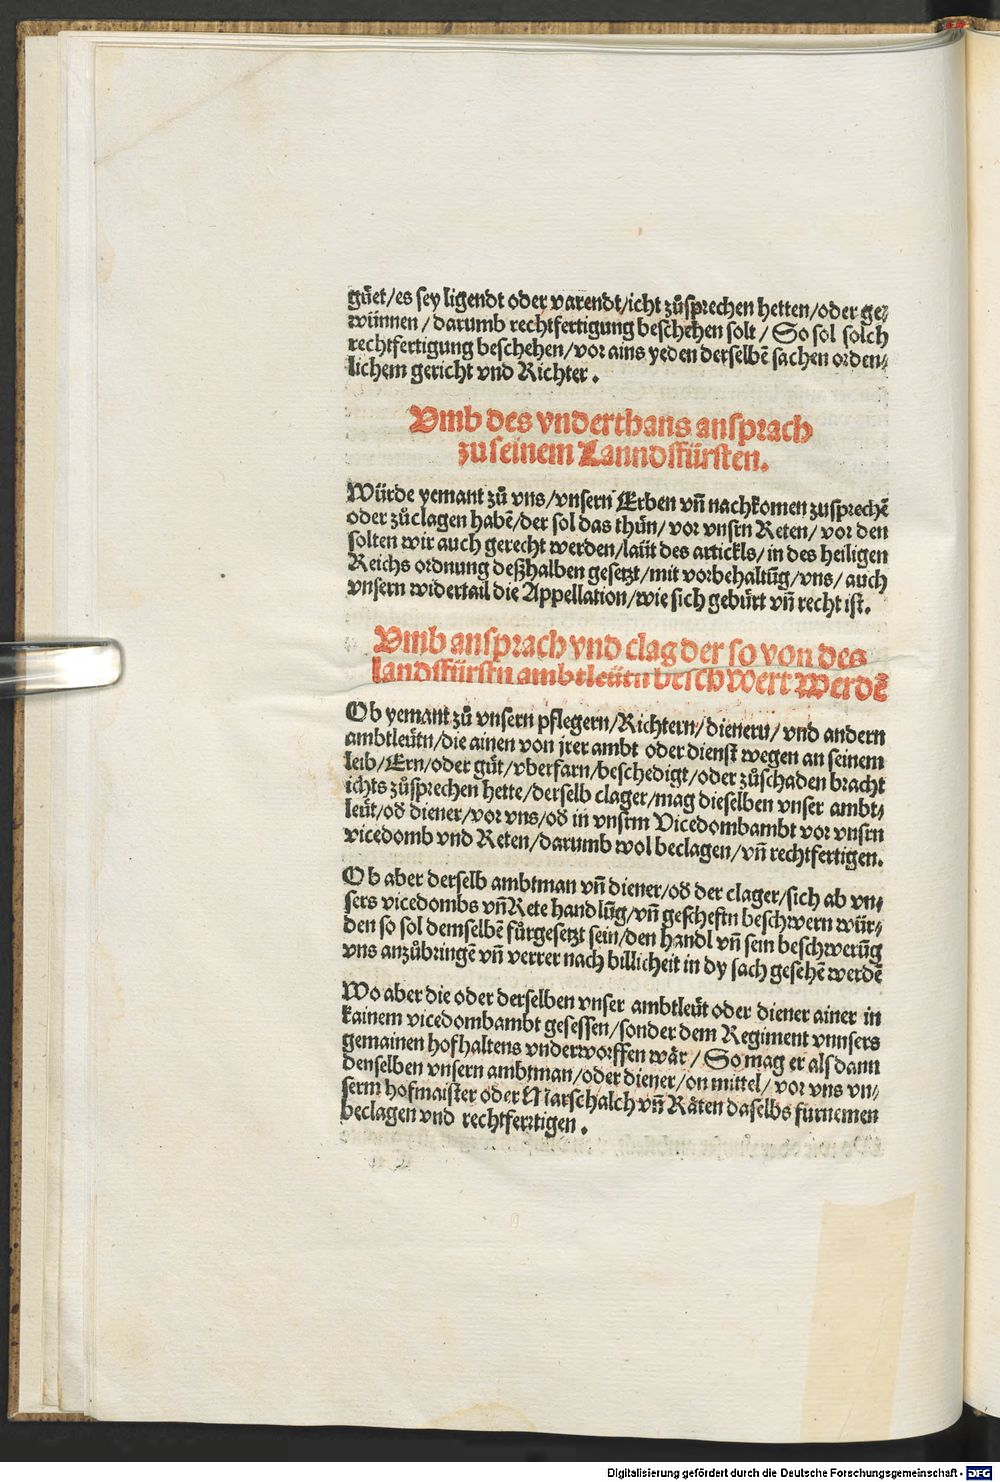 gůet/es sey ligendt oder varendt/icht zůsprechen hetten/oder ge⸗
wünnen / darumb rechtfertigung beschehen solt / So sol solch
rechtfertigung beschehen/vor ains yeden derselbē sachen orden⸗
lichem gericht vnd Richter .
Vmb des vnderthans ansprach
zu seinem Lanndsfürsten.
Würde yemant zů vns/vnsern Erben vn̄ nachkomen zusprechē
oder zůclagen habē/der sol das thůn/ vor vnsrn Reten/ vor den
solten wir auch gerecht werden/laüt des artickls/ in des heiligen
Reichs ordnung deßhalben gesetzt/mit vorbehaltūg/vns/ auch
vnsern widertail die Appellation/wie sich gebürt vn̄ recht ist.
Vmb ansprach vnd clag der so von des
landsfürstn ambtleütn beschwert Werdē
Ob yemant zů vnsern pflegern/Richtern/dienern/ vnd andern
ambtleütn/die ainen von jrer ambt oder dienst wegen an seinem
leib/Ern/oder gůt/vberfarn/beschedigt/oder zůschaden bracht
ichts zůsprechen hette/derselb clager/mag dieselben vnser ambt⸗
leüt/od̄ diener/vor vns/od̄ in vnsrm Vicedombambt vor vnsrn
vicedomb vnd Reten/darumb wol beclagen/vn̄ rechtfertigen.
Ob aber derselb ambtman vn̄ diener/od̄ der clager/sich ab vn⸗
sers vicedombs vn̄ Rete handlūg/vn̄ gescheftn beschwern wür⸗
den so sol demselbē fůrgesetzt sein/den handl vn̄ sein beschwerūg
vns anzůbringē vn̄ verrer nach billicheit in dy sach gesehē werdē
Wo aber die oder derselben vnser ambtleüt oder diener ainer in
kainem vicedombambt gesessen/sonder dem Regiment vnnsers
gemainen hofhaltens vnderworffen wär / So mag er alsdann
denselben vnsern ambtman/oder diener/on mittel/ vor vns vn⸗
serm hofmaister oder Marschalch vn̄ Räten daselbs fürnemen
beclagen vnd rechtferrtigen .
Digitalisierung gefördert durch die Deutsche Forschungsgemeinschaft - DFG